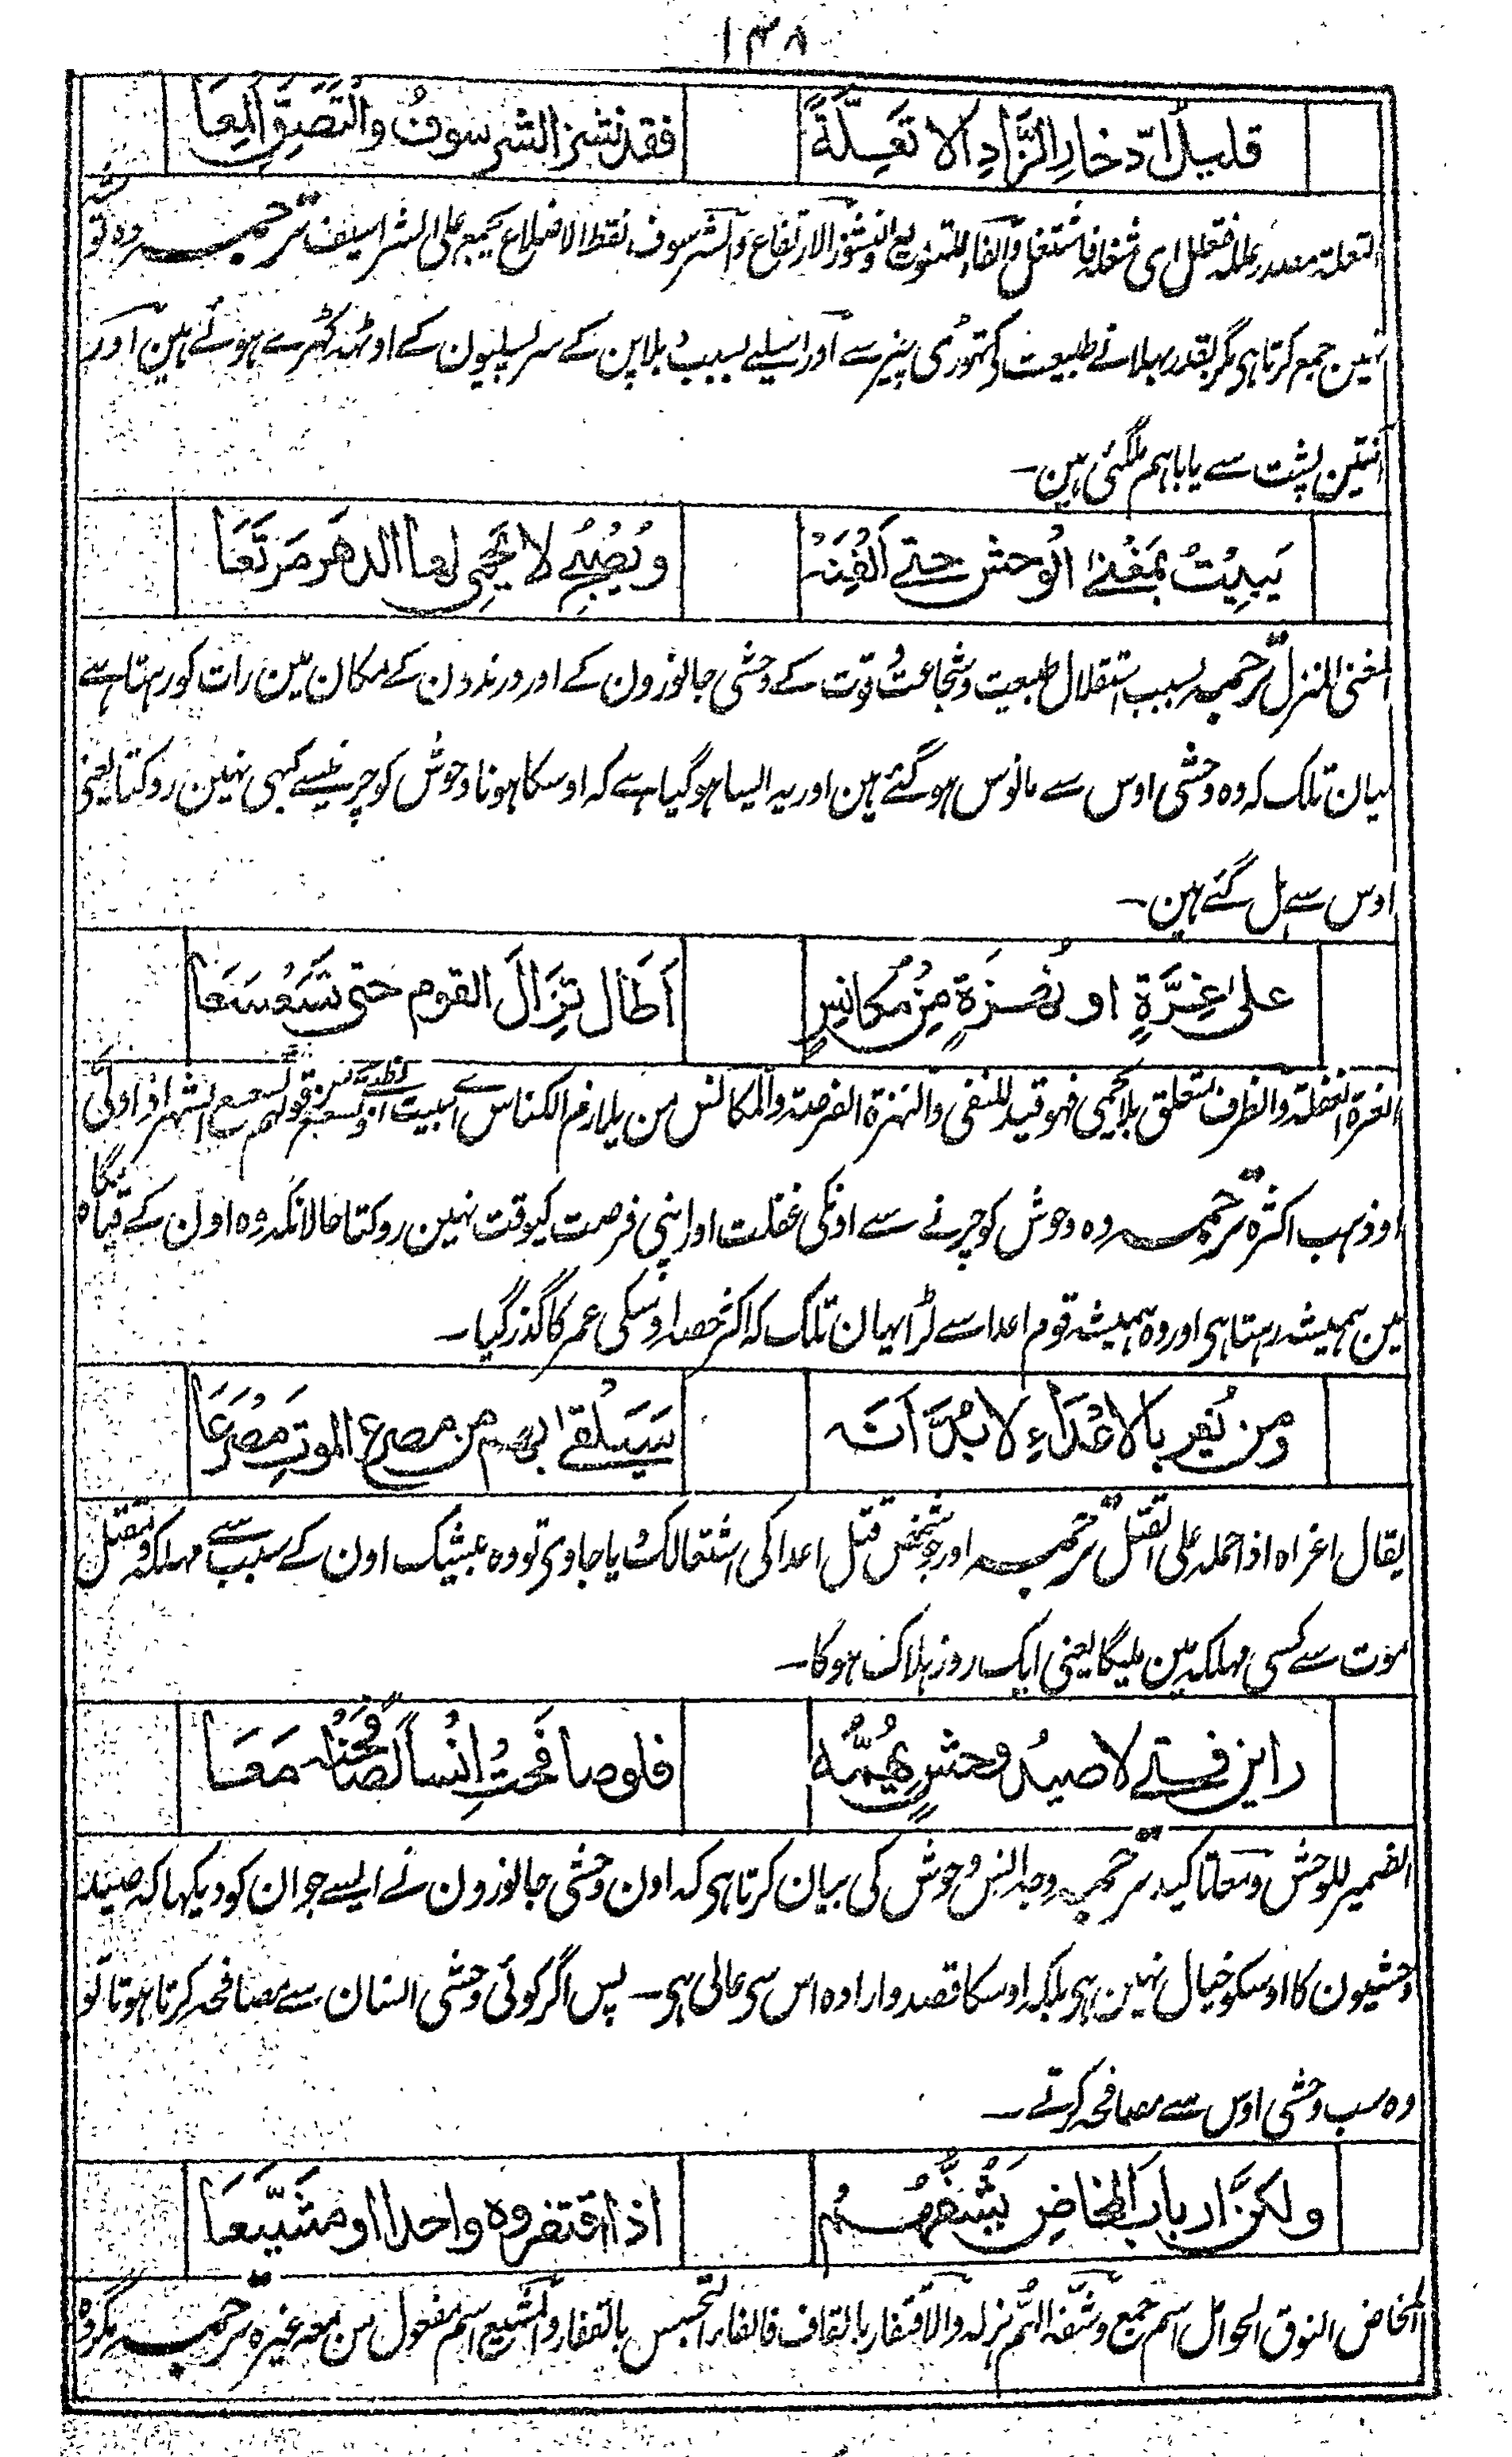 ۱۳۸
قليلُ ادّخارِ الزَّادِ الا تَعِلَّةً فقد نشز الشرسوفُ والْتَصَقَ المِعَا
التعلۃ مصدر علله فتعلل ای شغله فاشتغل والفاء للتفریع والنشوز الارتفاع والشرسوف نقط الاضلاع یجمع علی الشراسیف ترجمہ وہ توشہ
نہین جمع کرتا ہی مگر بقدر بہلانے طبیعت کی تہوڑی چیز سے اور اسلیے بسبب دبلاپن کے سر پسلیون کے اوٹھہ کھڑے ہوئے ہین اور
آنتین پشت سے یا باہم ملگئی ہین۔
يَبِيْتُ بمَغْنَى الْوحش حتى اَلِفْنَهُ ويُصْبِحُ لا يَحْمِي لها الدهرَ مَرْتَعَا
المغنی المنزل ترجمہ بسبب استقلال طبیعت وشجاعت وقوت کے وحشی جانورون کے اور درندون کے مکان مین رات کو رہتا ہے
یہان تلک کہ وہ وحشی اوس سے مانوس ہو گئے ہین اور یہ ایسا ہو گیا ہے کہ اوسکا ہونا وحوش کو چرنیسے کبھی نہین روکتا یعنی
اوس سے ہل گئے ہین۔
على غِرَّةٍ او نُهْزَةٍ مِنْ مُكانِسٍ اَطَال نِزَالَ القوم حتى تَسَعْسَعَا
الغرۃ الغفلۃ والظرف متعلق بلا یحمی فہو قید للنفی والنہزۃ الفرصۃ والمکانس من یلازم الکناس ای البیت وتسعسع من قولهم تسعسع الشہر اذا ولی
او ذہب اکثرہ ترجمہ وہ وحوش کو چرنے سے اونکی غفلت اور اپنی فرصت کیوقت نہین روکتا حالانکہ وہ اون کے قیامگاہ
مین ہمیشہ رہتا ہی اور وہ ہمیشہ قوم اعدا سے لڑا یہان تلک کہ اکثر حصہ اوسکی عمر کا گذر گیا۔
ومن يُغرَ بالاعْدَاءِ لا بُدَّ اَنَّہ سَيَلْقَى بهم من مصرع الموتِ مَصْرَعَا
یقال اغراہ اذا حملہ علی القتل ترجمہ اور جو شخص قتل اعدا کی اشتعالک دیا جاوی تو وہ بیشک اون کے سبب سے مہلکہ ومقتل
موت سے کسی مہلکہ مین ملیگا یعنی ایک روز ہلاک ہوگا۔
راين فتى لا صيدُ وحشٍ يُهِمُّه فلو صافَحَتْ اِنْساً لصَافَحْنَه مَعَا
الضمیر للوحش ومعا تاکید ترجمہ وجہ انس وحوش کی بیان کرتا ہی کہ اون وحشی جانورون نے ایسے جوان کو دیکہا کہ صید
وحشیون کا اوسکو خیال نہین ہی بلکہ اوسکا قصد وارادہ اس سی عالی ہی۔ پس اگر کوئی وحشی انسان سے مصافحہ کرتا ہوتا تو
وہ سب وحشی اوس سے مصافحہ کرتے۔
ولكنَّ اربابَ المخاضِ يَشُفُّهُم اذا اقتفروه واحدا او مشيَّعَا
المخاض النوق الحوامل اسم جمع وشفّہ الہم ہزلہ والاقتفار بالقاف فالفاء التجسس بالقفار والمشیع اسم مفعول من معہ غیرہ ترجمہ مگر وہ